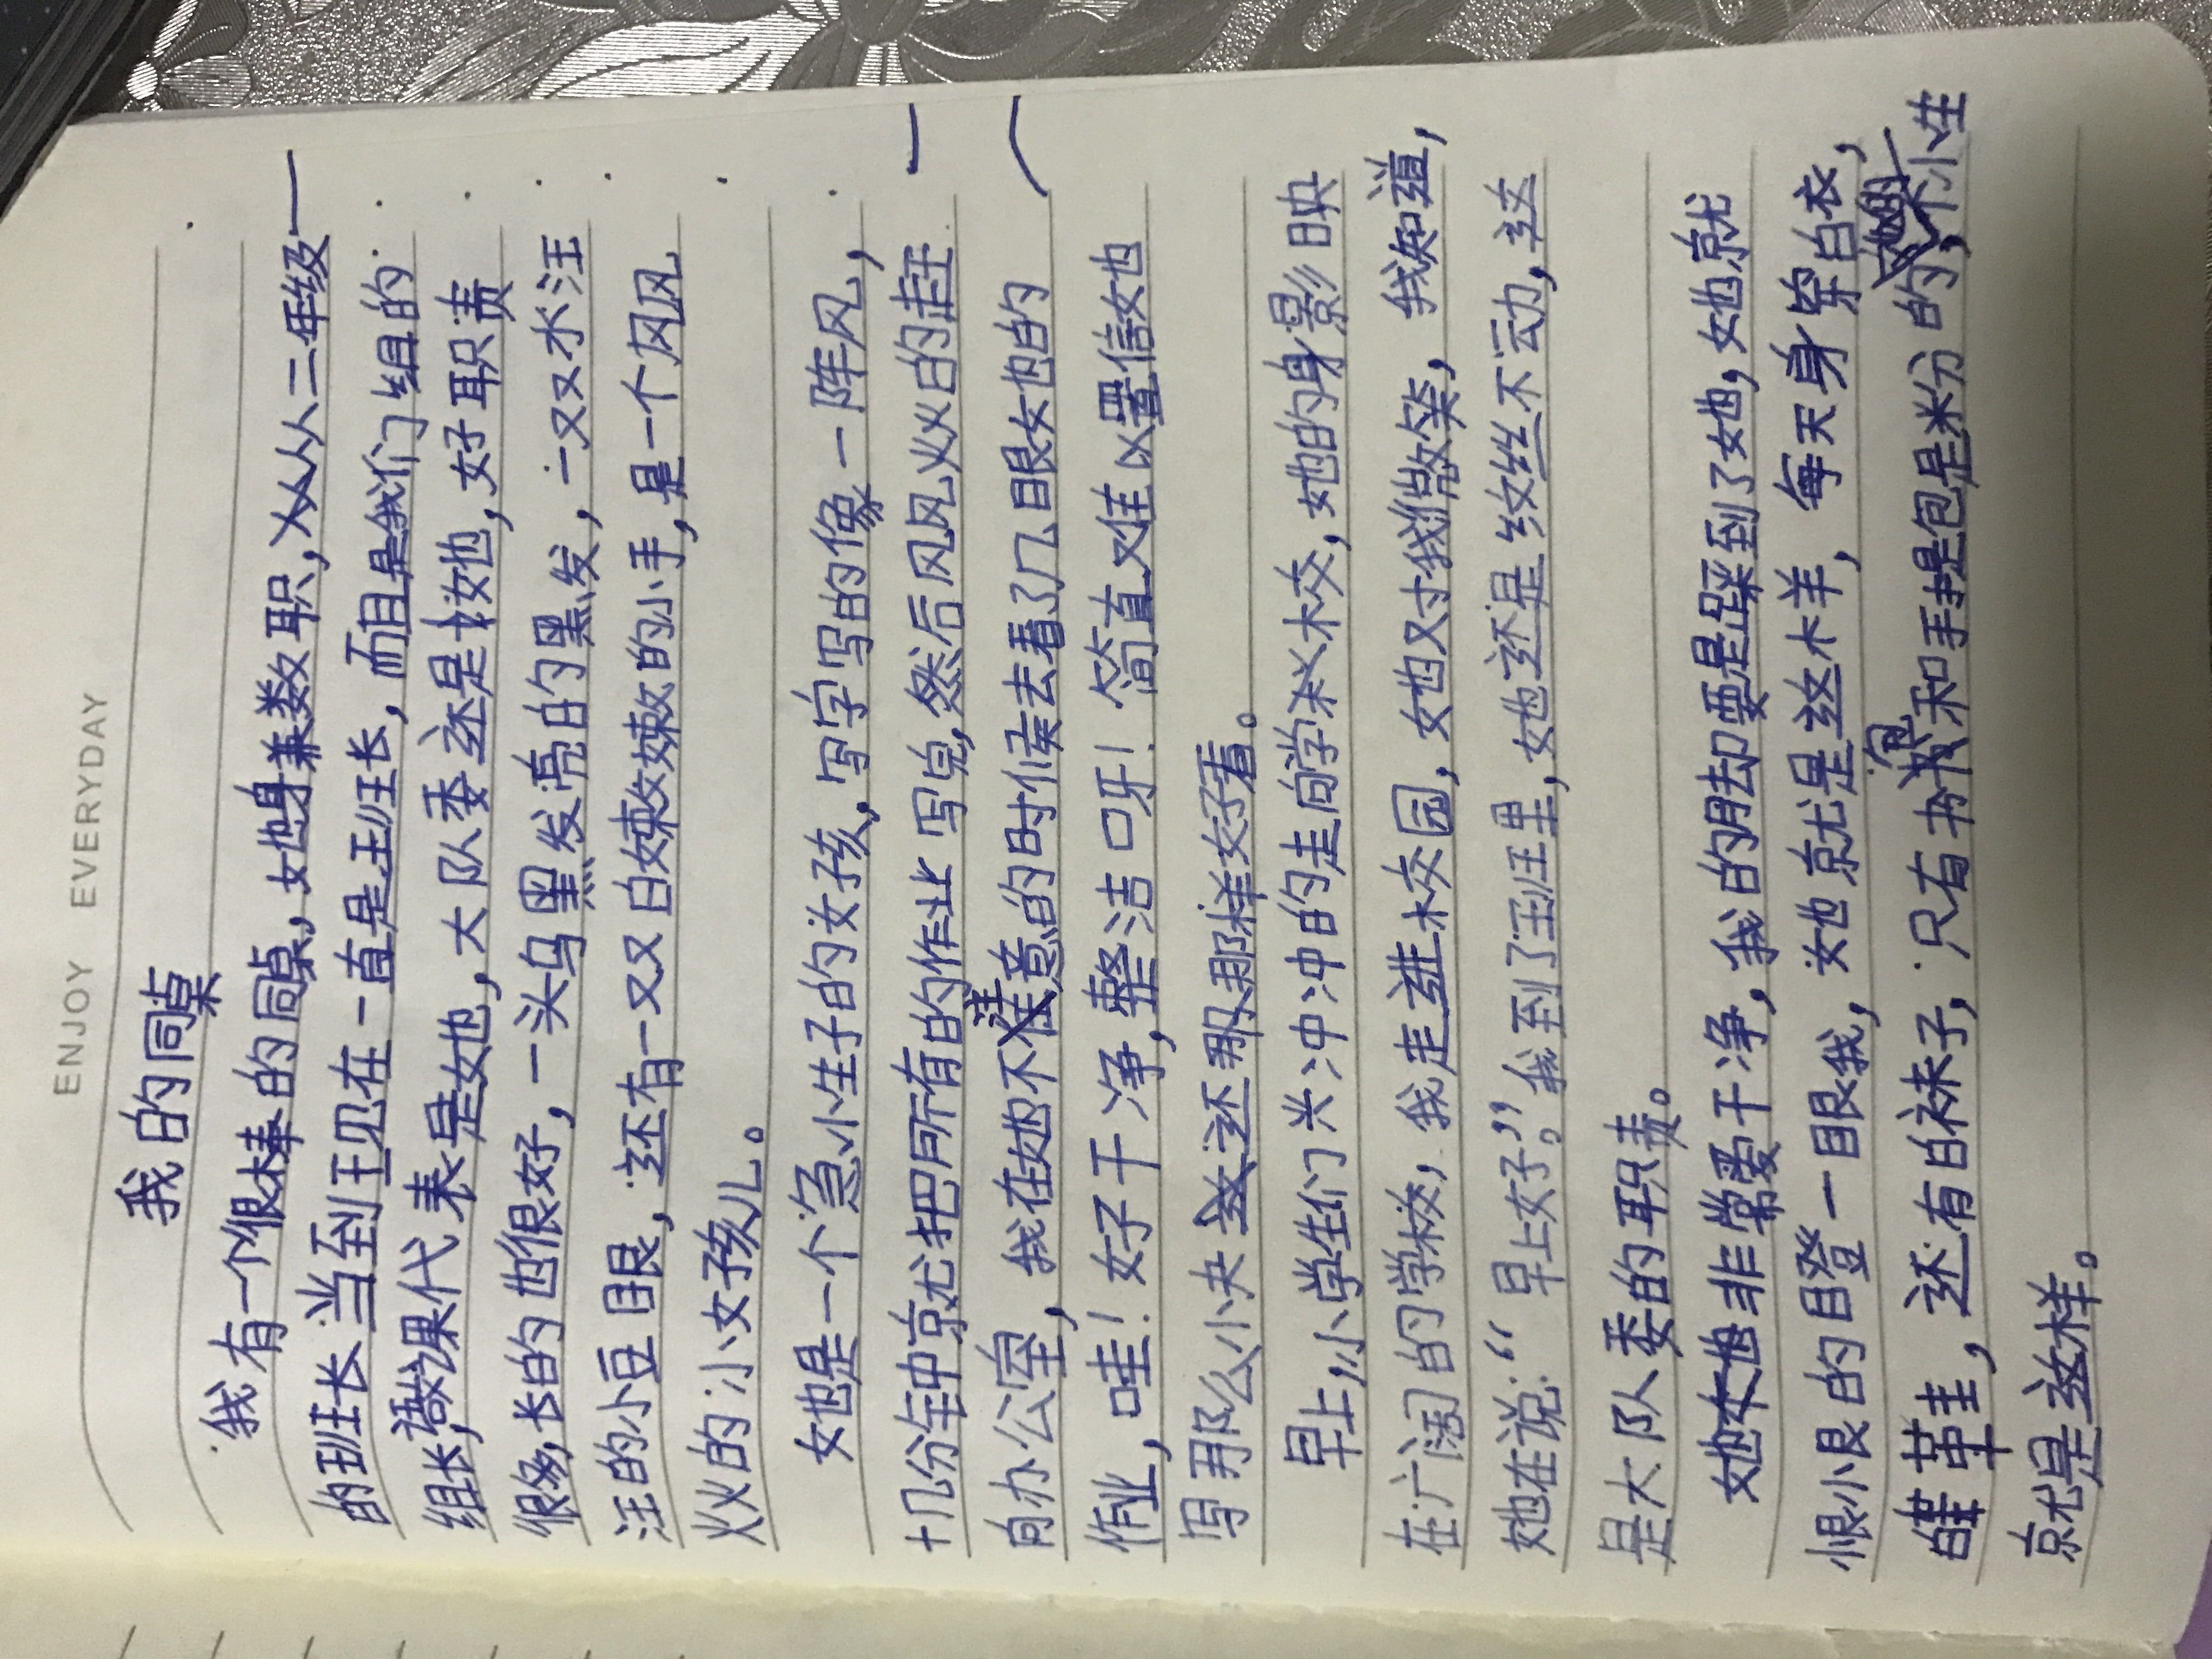 ENJOY EVERYDAY
我的同桌
我有一个很棒的同桌，她身兼数职，从二年级
的班长当到王见在一直是班长，而且是我们组的
组长，语课代表是她，大队委还是她，好职责
很多，长的也很好，一头乌黑发亮的黑发，一双水汪
汪的小豆眼，还有一双白嫩嫩的小手，是一个风风
火火的小女孩儿。
她是一个急小生子的女孩，写字写的像一阵风，
十几分钟就把所有的作业写完，然后风风火火的赶
向办公室，我在她不注意的时候去看了几眼她的
作业，哇！好干净，整洁呀！简直难以置信她
写那么小夬还那样好看。
早上，小学生们兴冲冲的走向学校，她的身影映
在广阔的学校，我走进校园，她对我微笑，我知道，
她在说：“早上好。”我到了班里，她还是纹丝不动，这
是大队委的职责。
她非常爱干净，我的脚要是踩到了她，她就
恨小恨的瞪一眼我，她就是这样，每天身穿白衣，
白鞋，还有白袜子，只有书包和手提包是粉的，小生
就是这样。